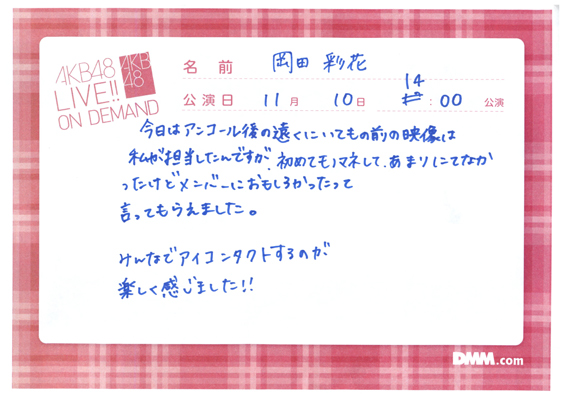 AKB48
LIVE!!
ON DEMAND
AKB
48
名 前 岡田 彩花
公演日 11月 10日 14:00 公演
今日はアンコール後の遠くにいてもの前の映像は
私が担当したんですが、初めてモノマネして、あまりにてなか
ったけどメンバーにおもしろかったって
言ってもらえました。
みんなでアイコンタクトするのが
楽しく感じました!!
DMM.com